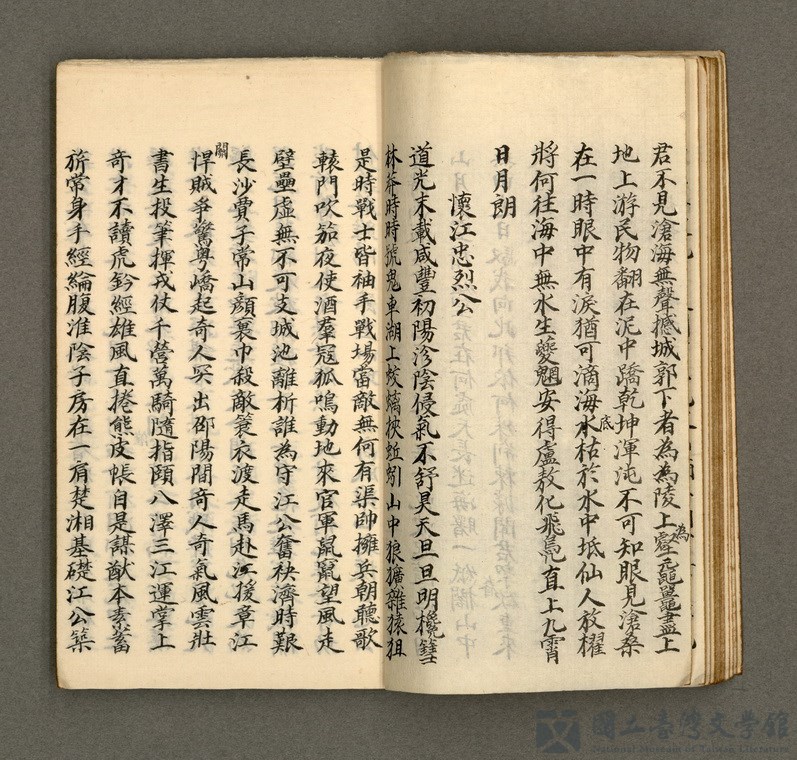 君不見滄海無聲撼城郭下者為為陵上為壑黿鼉盡上
地上游民物翻在泥中蹻乾坤渾沌不可知眼見滄桑
在一時眼中有淚猶可滴海水枯於水中坻仙人放櫂
底
將何往海中無水生夔魍安得盧敖化飛鳧直上九霄
日月朗
懷江忠烈公
道光末載咸豐初陽沴陰侵氣不舒昊天旦旦明欃鏳
林莽時時號鬼車湖上蛟螭挾蚯蚓山中狼獷雜猿狙
是時戰士皆袖手戰場當敵無何有渠帥擁兵朝聽歌
轅門吹笳夜使酒羣冠狐鳴動地來官軍鼠竄望風走
壁壘虛無不可支城池離析誰為守江公奮袂濟時艱
長沙賈子常山顏裹巾殺敵簑衣渡走馬赴江援章江
關
悍賊爭驚粵嶠起奇人突出邵陽間奇人奇氣風雲壯
書生投筆揮戎仗千營萬騎隨指頤八澤三江運掌上
奇才不讀虎鈐經雄風直捲熊皮帳自是謀猷本素蓄
旂常身手經綸腹淮陰子房在一肩楚湘基礎江公築
國立臺灣文學館
National Museum of Taiwan Literature